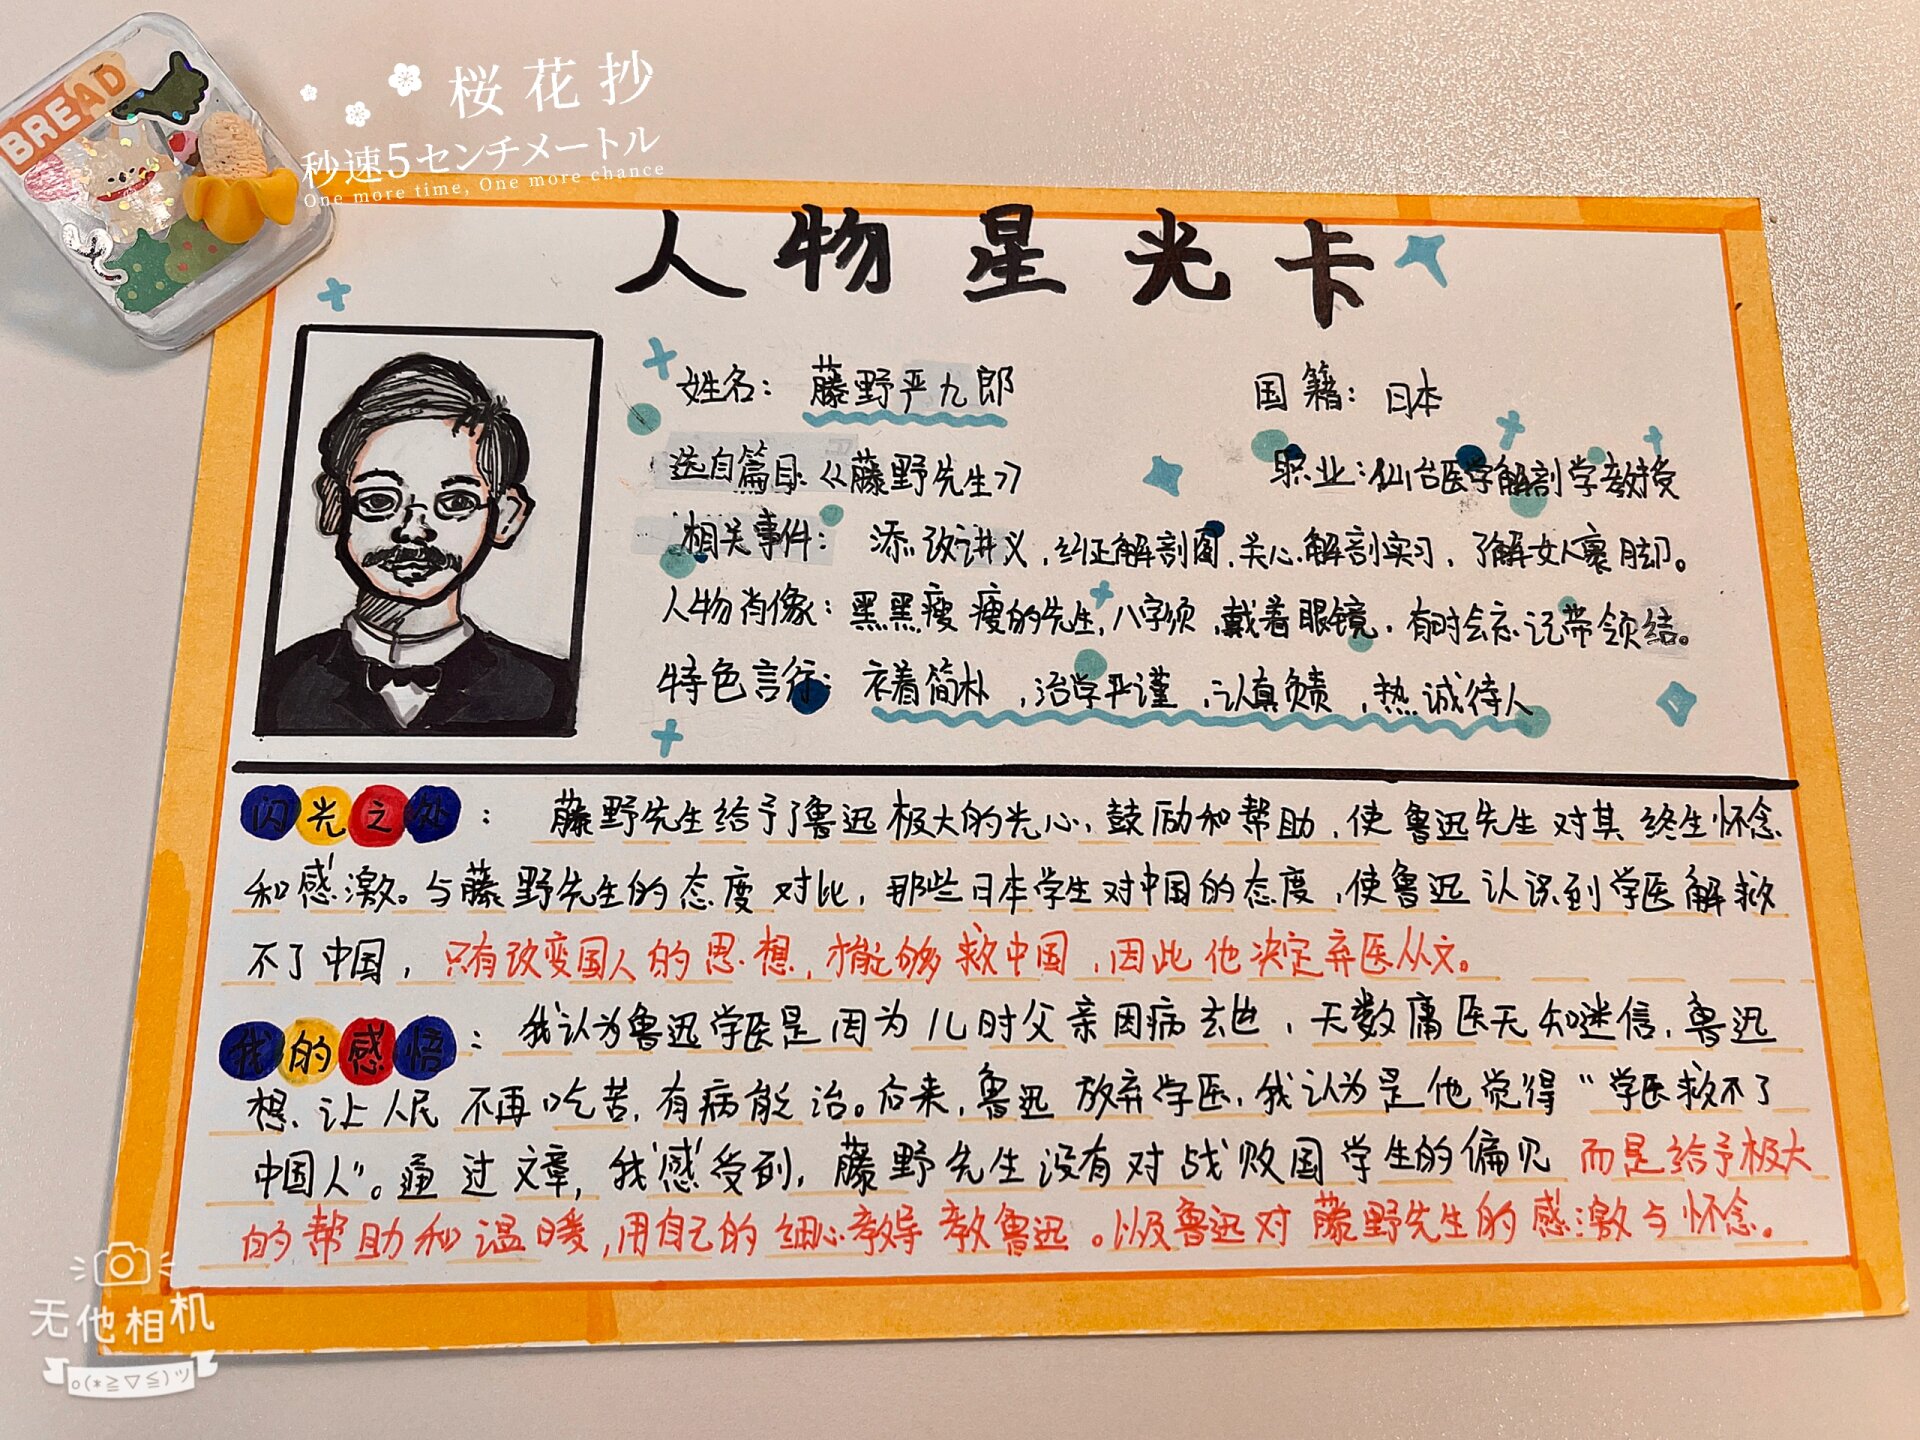 BREAD
桜花抄
秒速5センチメートル
One more time, One more chance
人物星光卡
姓名：藤野严九郎 国籍：日本
选自篇目《藤野先生》 职业：仙台医学解剖学教授
相关事件：添改讲义，纠正解剖图，关心解剖实习，了解女人裹脚。
人物肖像：黑黑瘦瘦的先生，八字须，戴着眼镜，有时会忘记带领结。
特色言行：衣着简朴，治学严谨，认真负责，热诚待人
闪光之处：藤野先生给予了鲁迅极大的关心、鼓励和帮助，使鲁迅先生对其终生怀念
和感激。与藤野先生的态度对比，那些日本学生对中国的态度，使鲁迅认识到学医解救
不了中国，只有改变国人的思想，才能够救中国，因此他决定弃医从文。
我的感悟：我认为鲁迅学医是因为儿时父亲因病去世，天数庸医无知迷信，鲁迅
想让人民不再吃苦，有病能治。后来，鲁迅放弃学医，我认为是他觉得“学医救不了
中国人”。通过文章，我感受到，藤野先生没有对战败国学生的偏见而是给予极大
的帮助和温暖，用自己的细心教导教鲁迅。以及鲁迅对藤野先生的感激与怀念。
无他相机
o(*≧▽≦)ツ